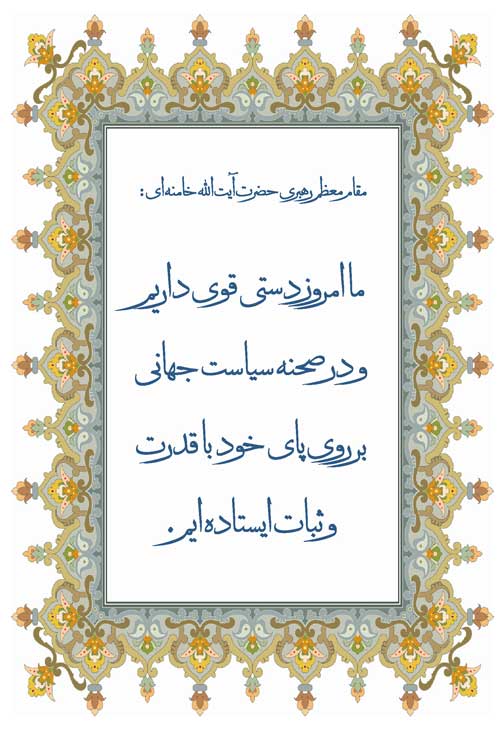 مقام معظم رهبری حضرت آیت الله خامنه‌ای :
ما امروز دستی قوی داریم
و در صحنه سیاست جهانی
بر روی پای خود با قدرت
و ثبات ایستاده‌ایم.